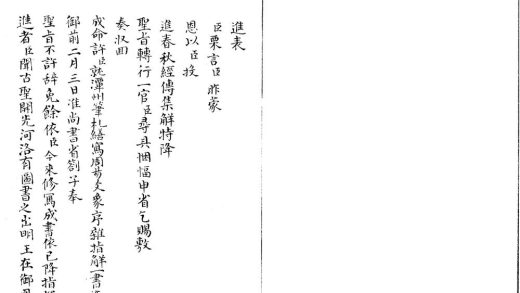 進表
臣栗言臣昨蒙
恩以臣投
進春秋經傳集解特降
聖旨轉行一官臣尋具悃愊申省乞賜敷
奏収回
成命許臣就潭州筆札繕寫周易爻象序雜指解一書
御前二月三日准尚書省劄子奉
聖旨不許辭免餘依臣今來修寫成書依已降指
進者臣聞古聖開先河洛有圖書之出明王在御